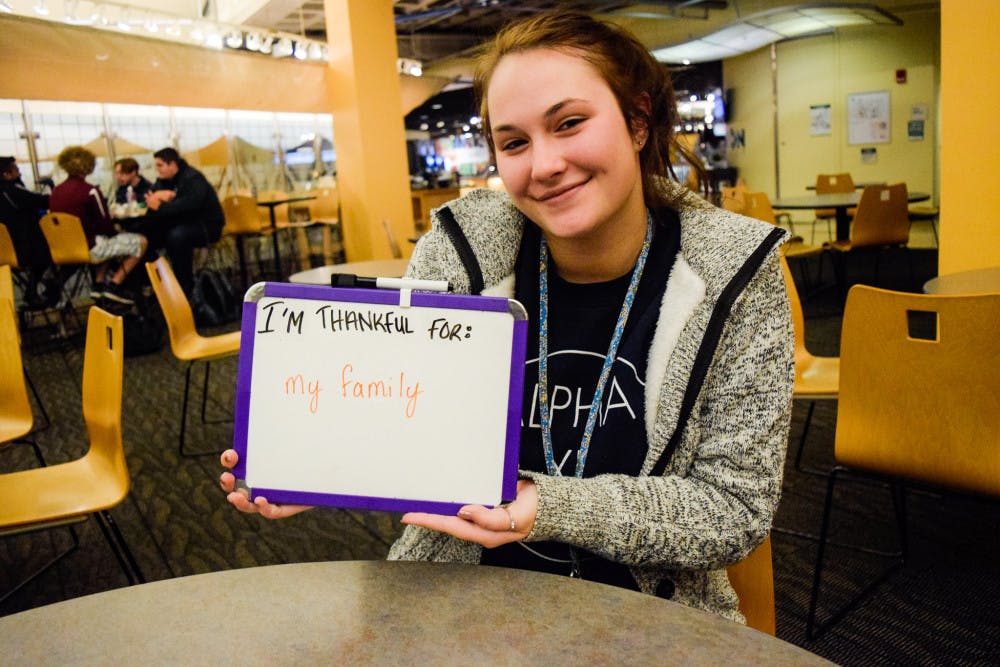 I'M THANKFUL FOR:
my family
ALPHA